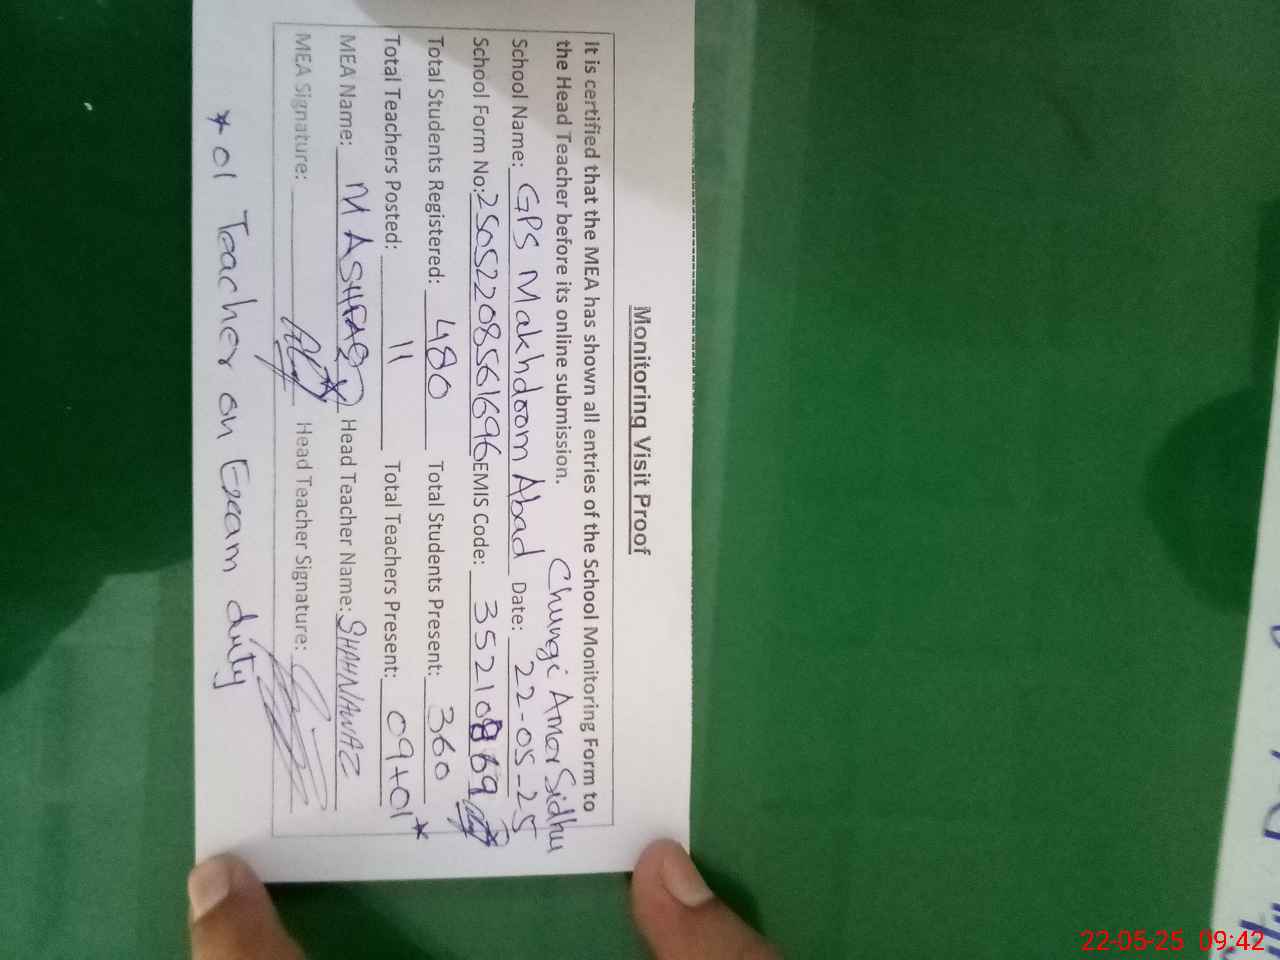 Monitoring Visit Proof
It is certified that the MEA has shown all entries of the School Monitoring Form to
the Head Teacher before its online submission. Chungi Amar Sidhu
School Name: GPS Makhdoom Abad Date: 22-05-25
School Form No: 25052208561696 EMIS Code: 35210869
Total Students Registered: 480 Total Students Present: 360
Total Teachers Posted: 11 Total Teachers Present: 09+01*
MEA Name: M ASHFAQ Head Teacher Name: SHAHNAWAZ
MEA Signature: Head Teacher Signature:
* 01 Teacher on Exam duty
22-05-25 09:42